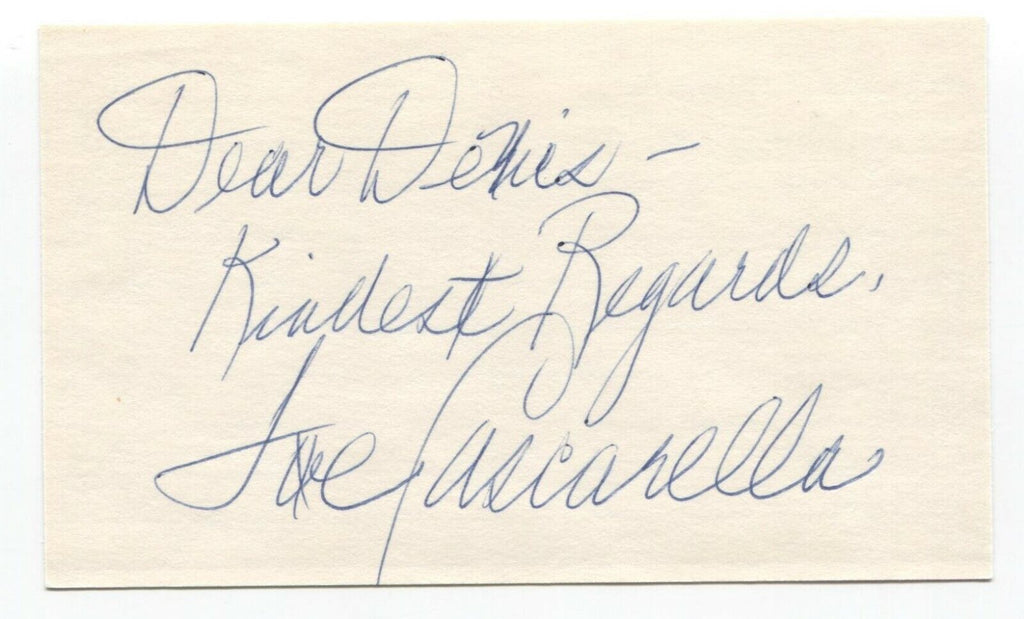 Dear Denis -
Kindest Regards,
Joe Cascarella